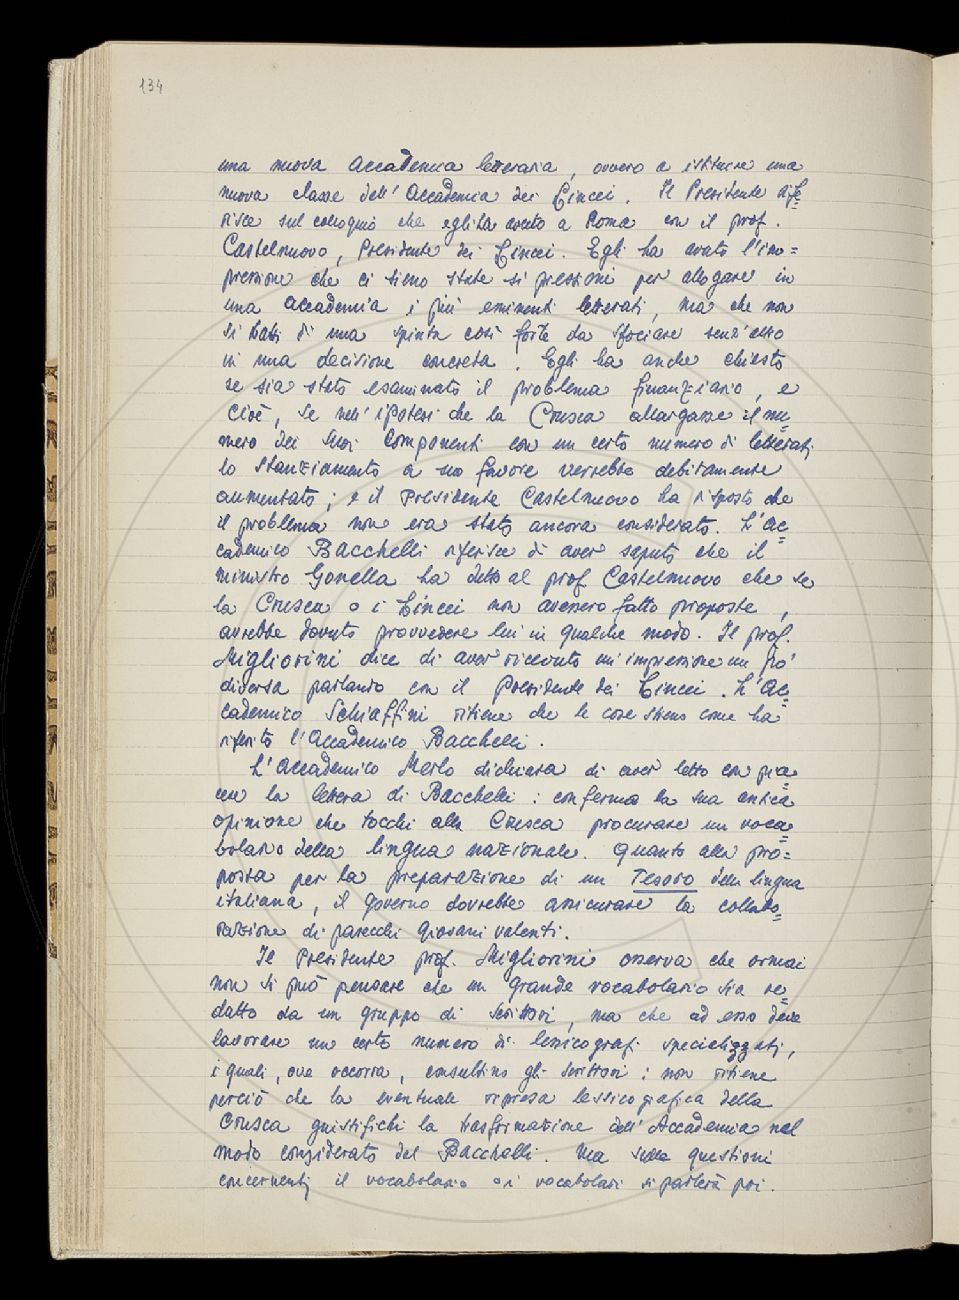 134
una nuova Accademia letteraria, ovvero a istituire una
nuova classe dell'Accademia dei Lincei. Il Presidente rife=
risce sul colloquio che egli ha avuto a Roma con il prof.
Castelnuovo, Presidente dei Lincei. Egli ha avuto l'im=
pressione che ci sieno state sì pressioni per allogare in
una accademia i più eminenti letterati, ma che non
si tratti di una spinta così forte da sfociare senz'altro
in una decisione concreta. Egli ha anche chiesto
se sia stato esaminato il problema finanziario, e
cioè, se nell'ipotesi che la Crusca allargasse il nu=
mero dei suoi componenti con un certo numero di letterati
lo stanziamento a suo favore verrebbe debitamente
aumentato; e il Presidente Castelnuovo ha risposto che
il problema non era stato ancora considerato. L'Ac=
cademico Bacchelli riferisce di aver saputo che il
ministro Gonella ha detto al prof. Castelnuovo che se
la Crusca o i Lincei non avessero fatto proposte,
avrebbe dovuto provvedere lui in qualche modo. Il prof.
Migliorini dice di aver ricevuto un'impressione un po'
diversa parlando con il Presidente dei Lincei. L'Ac=
cademico Schiaffini ritiene che le cose stieno come ha
riferito l'Accademico Bacchelli.
L'Accademico Merlo dichiara di aver letto con pia=
cere la lettera di Bacchelli: conferma la sua antica
opinione che tocchi alla Crusca procurare un voca=
bolario della lingua nazionale. Quanto alla pro=
posta per la preparazione di un Tesoro della lingua
italiana, il governo dovrebbe assicurare la collabo=
razione di parecchi giovani valenti.
Il Presidente prof. Migliorini osserva che ormai
non si può pensare che un grande vocabolario sia re=
datto da un gruppo di scrittori, ma che ad esso deve
lavorare un certo numero di lessicografi specializzati,
i quali, ove occorra, consultino gli scrittori: non ritiene
perciò che la eventuale ripresa lessicografica della
Crusca giustifichi la trasformazione dell'Accademia nel
modo considerato dal Bacchelli. Ma sulle questioni
concernenti il vocabolario o i vocabolari si parlerà poi.